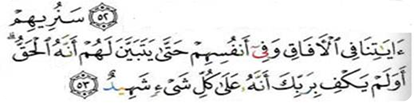 ﴿٥٢﴾ سَنُرِيهِمْ
ءَايَٰتِنَا فِى ٱلْءَافَاقِ وَفِىٓ أَنفُسِهِمْ حَتَّىٰ يَتَبَيَّنَ لَهُمْ أَنَّهُ ٱلْحَقُّ ۗ
أَوَلَمْ يَكْفِ بِرَبِّكَ أَنَّهُۥ عَلَىٰ كُلِّ شَىْءٍ شَهِيدٌ ﴿٥٣﴾